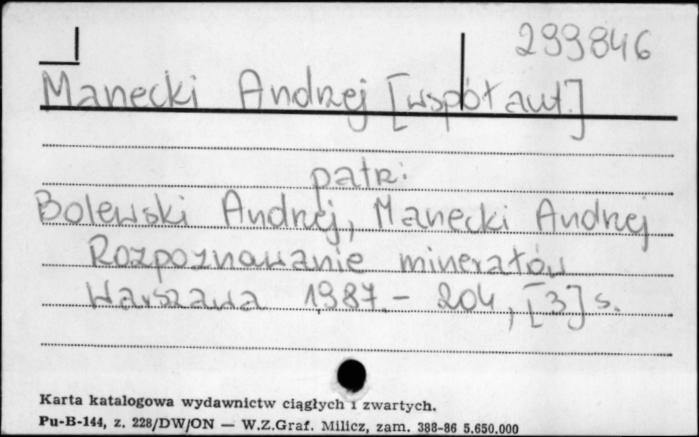 299846
Manecki Andrzej [współaut.]
patrz:
Bolewski Andrzej, Manecki Andrzej
Rozpoznawanie minerałów
Warszawa 1987 - 204, [3] s.
Karta katalogowa wydawnictw ciągłych i zwartych.
Pu-B-144, z. 228/DW/ON — W.Z.Graf. Milicz, zam. 388-86 5.650.000